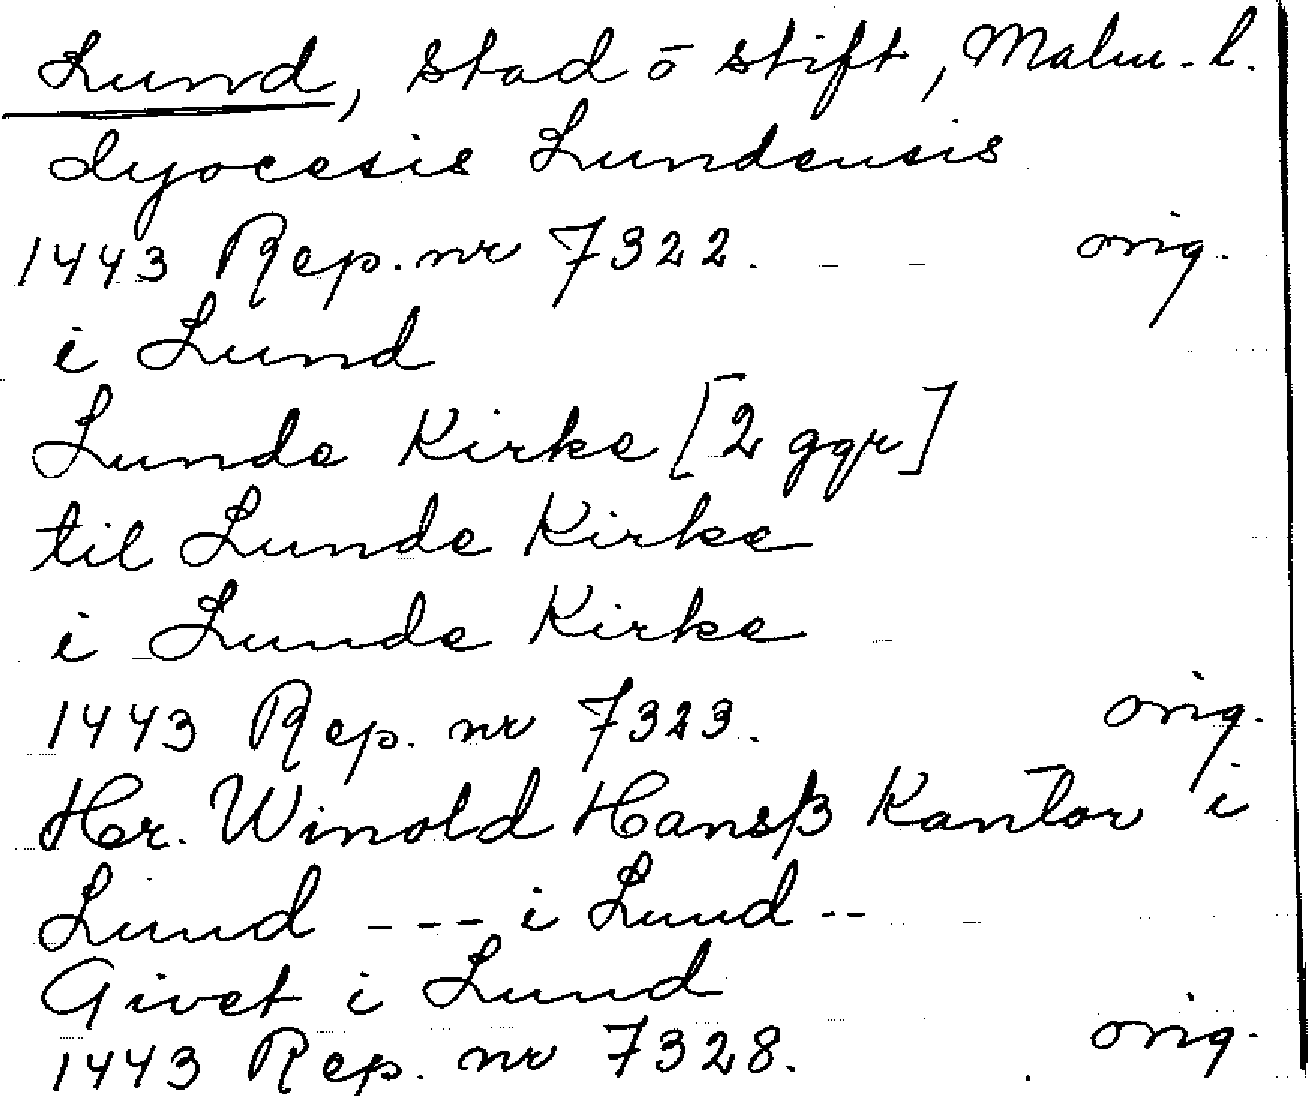 Lund, stad o stift, Malm. l.
dyocesis Lundensis
1443 Rep. nr 7322. - - orig.
i Lund
Lunde Kirke [2 ggr]
til Lunde Kirke
i Lunde Kirke
1443 Rep. nr 7323. orig.
Hr. Winold Hansß Kantor i
Lund - - - i Lund - -
Givet i Lund
1443 Rep. nr 7328. orig.